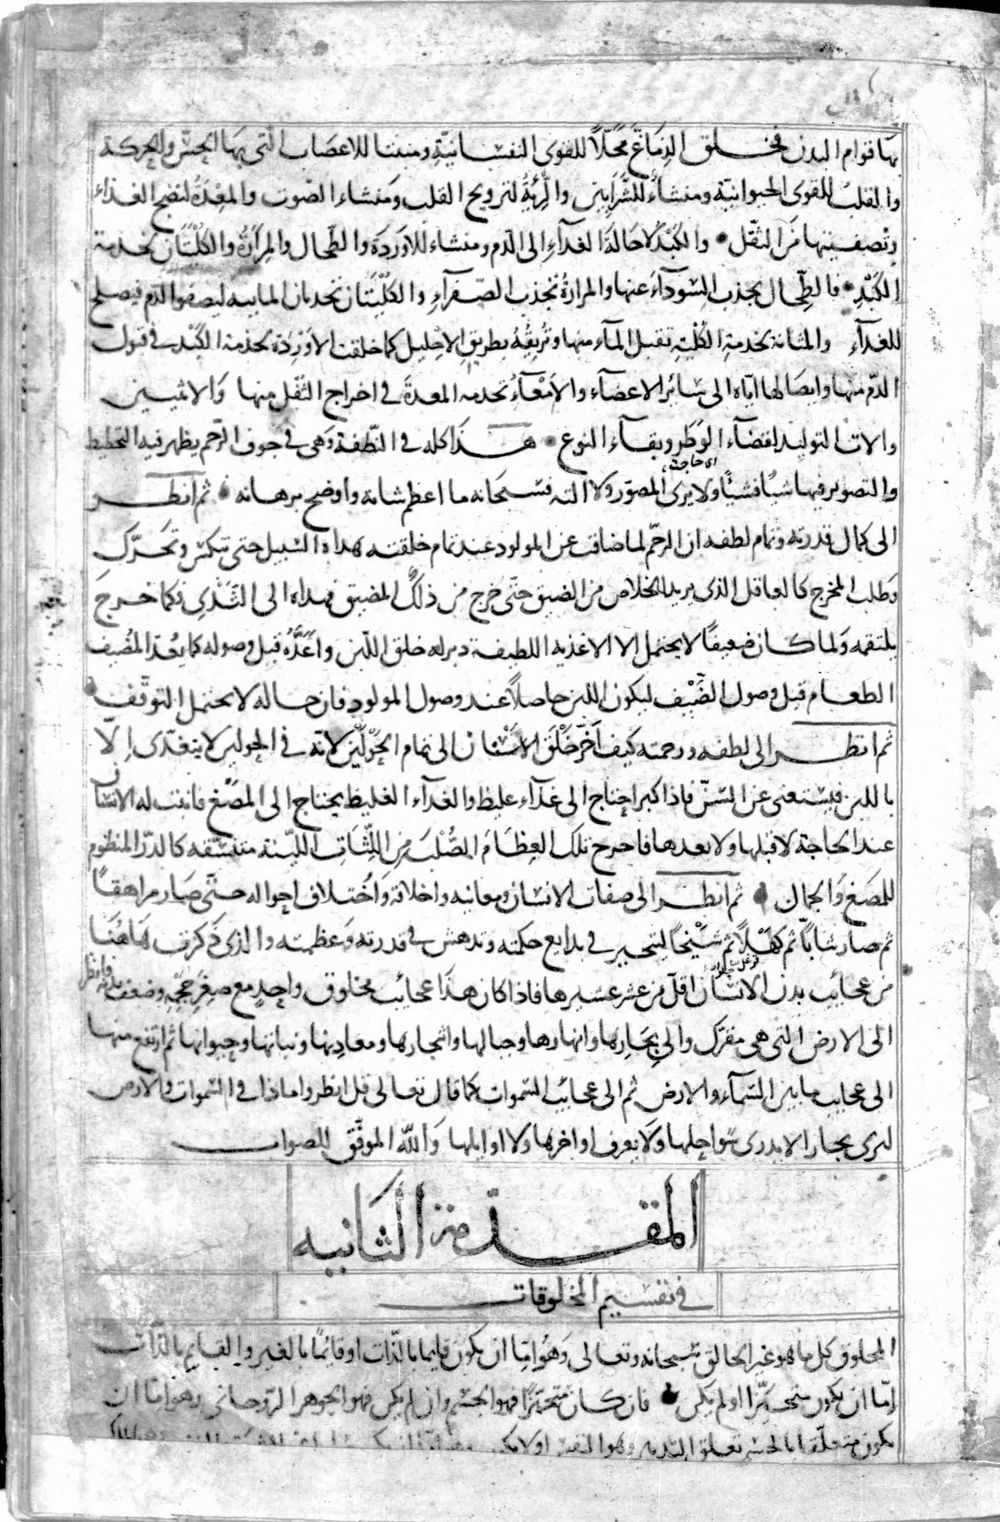 بها قوام البدن فخلق الدماغ محلاً للقوى النفسانية ومنبتا للاعصاب التي بها الحس والحركة
والقلب للقوى الحيوانية ومنشاءً للشرايين والرئة لترويح القلب ومنشاء الصوت والمعدة لنضج الغذاء
وتصفيتها من الثفل والكبد لاحالة الغذاء الى الدم ومنشاء للاوردة والطحال والمرارة والكليتان لخدمة
الكبد فالطحال بجذب السوداء عنها والمرارة تجذب الصفراء والكليتان تجذبان المائيه ليصفوا الدم فيصلح
للغذاء والمثانة لخدمة الكلية تقبل الماء منها وتريقه بطريق الاحليل كما خلقت الاوردة لخدمة الكبد في قبول
الدم منها وايصالها اياه الى سائر الاعضاء والامعاء لخدمه المعدة في اخراج الثفل منها والانثيين
والات التوليد لقضاء الوطر وبقاء النوع هذا كله في النطفة وهي في جوف الرحم يظهر فيه التخطيط
والتصوير فيها شيأ فشيأ ولا يرى المصور ولا الته فسبحانه ما اعظم شانه واوضح برهانه ثم انظر
الى كمال قدرته وتمام لطفه ان الرحم لما ضاق عن المولود عند تمام خلقته هداه السبيل حتى تنكس وتحرك
وطلب المخرج كالعاقل الذي يريد الخلاص من الضيق حتى خرج من ذلك المضيق فهداه الى الثدي فكما خرج
يلتقمه ولما كان ضعيفا لا يحتمل الا الاغذيه اللطيفة دبر له خلق اللبن واعده قبل وصوله كما يعد المضيف
الطعام قبل وصول الضيف ليكون اللبن حاصلاً عند وصول المولود فان حاله لا يحتمل التوقف
ثم انظر الى لطفه ورحمته كيف أخّر خلق الاسنان الى تمام الحولين لانه في الحولين لا يتغذى إلّا
باللبن فيستغنى عن السن فاذا كبر احتاج الى غذاء غليظ والغذاء الغليظ يحتاج الى المضغ فانبت له الاسنان
عند الحاجة لا قبلها ولا بعدها فاخرج تلك العظام الصلبة من اللثات اللينة متسقة كالدر المنظوم
للمضغ والجمال ثم انظر الى صفات الانسان ومعانيه واخلاقه واختلاف احواله حتى صار مراهقا
ثم صار شابا ثم كهلاً ثم شيخا لتحير في بدايع حكمته وتدهش في قدرته وعظمته والذي ذكرت هاهنا
من عجائب بدن الانسان اقل من عشر عشيرها فاذا كان هذا عجائب مخلوق واحد مع صغر حجمه وضعف بدنه فانظر
الى الارض التي هي مقرك والى بحارها وانهارها وجبالها واشجارها ومعادنها ونباتها وحيوانها ثم ارتفع منها
الى عجايب ما بين السماء والارض ثم الى عجائب السموات كما قال تعالى قل انظروا ماذا في السموات والارض
لترى بحارا لا يدرى سواحلها ولا يعرف اواخرها ولا اوايلها والله الموفق للصواب
المقدمة الثانيه
في تقسيم المخلوقات
المخلوق كل ما هو غير الخالق سبحانه وتعالى وهو اما ان يكون قايما بالذات او قائما بالغير والقايم بالذات
اما ان يكون متحيزا او لم يكن فان كان متحيزا فهو الجسم وان لم يكن فهو الجوهر الروحاني وهو اما ان
يكون متعلقا بالجسم تعلق التدبير وهو النفس او لا يكون